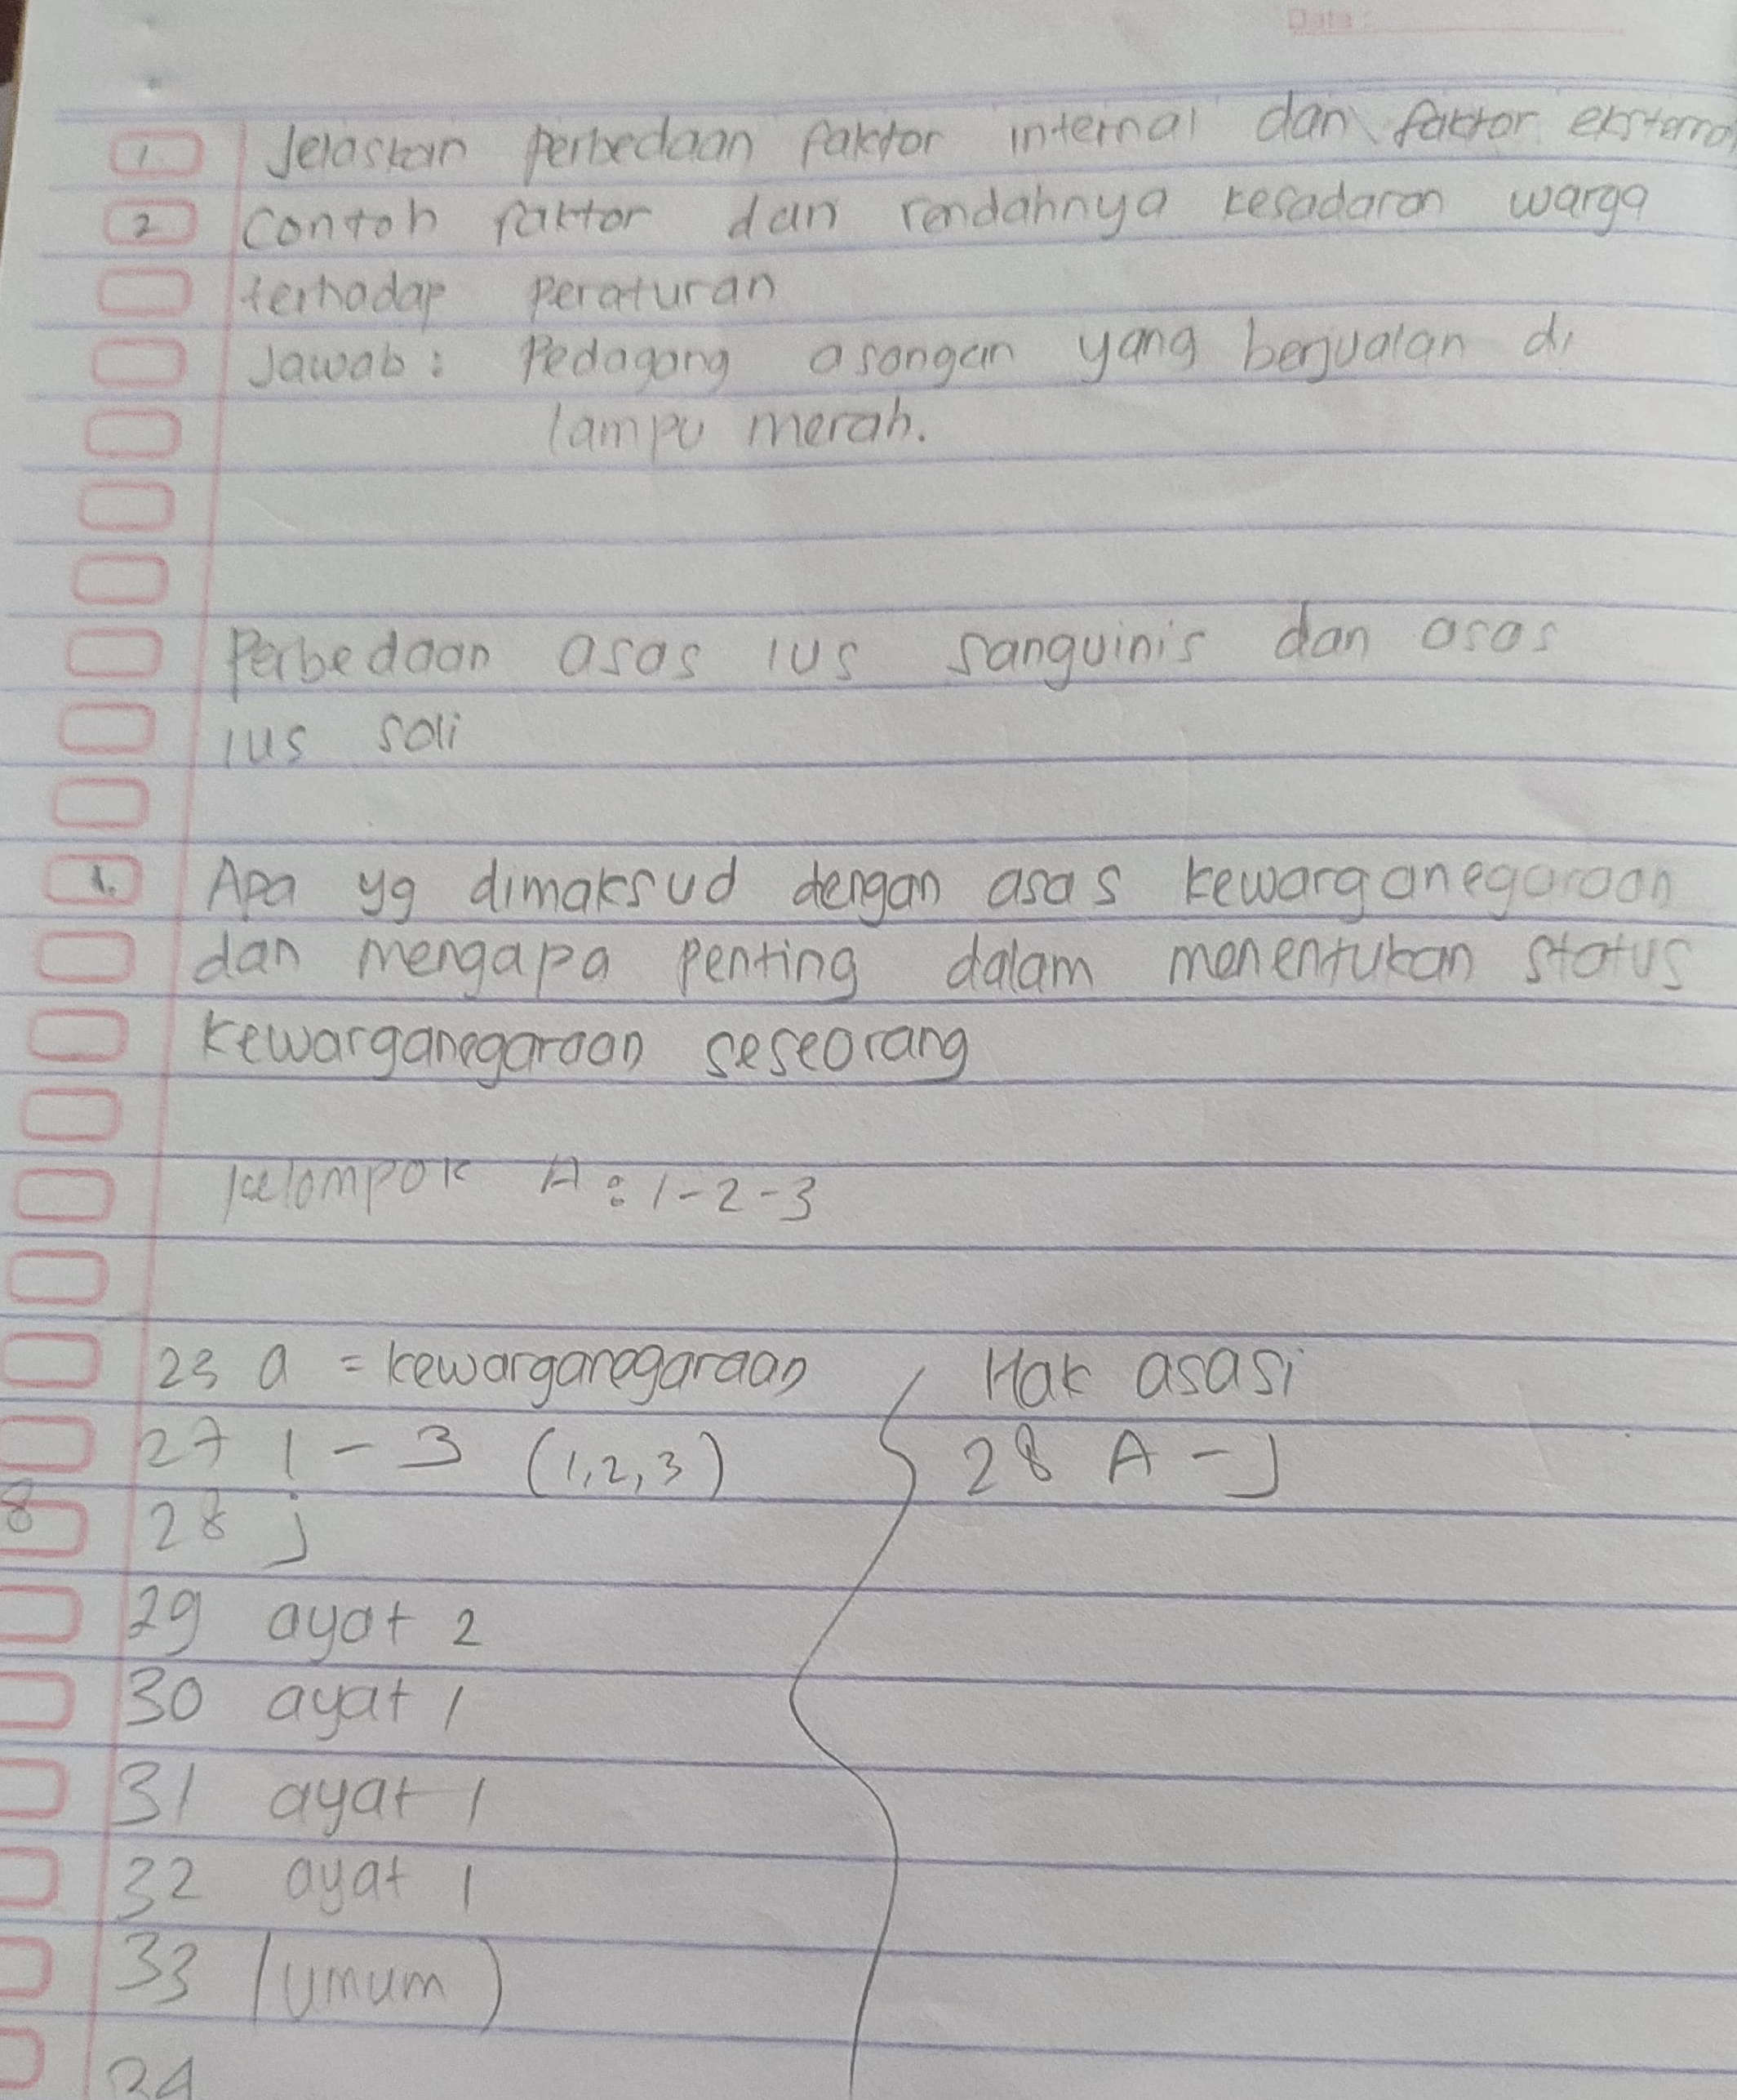 Date :
1. Jelaskan perbedaan faktor internal dan faktor eksternal
2 Contoh faktor dan rendahnya kesadaran warga
terhadap peraturan
Jawab : Pedagang asongan yang berjualan di
lampu merah.
Perbedaan asas ius sanguinis dan asas
ius soli
1. Apa yg dimaksud dengan asas kewarganegaraan
dan mengapa penting dalam menentukan status
kewarganegaraan seseorang
kelompok A : 1-2-3
23 a = kewarganegaraan
27 1 - 3 (1,2,3)
8 28 j
29 ayat 2
30 ayat 1
31 ayat 1
32 ayat 1
33 (umum)
Hak asasi
28 A - J